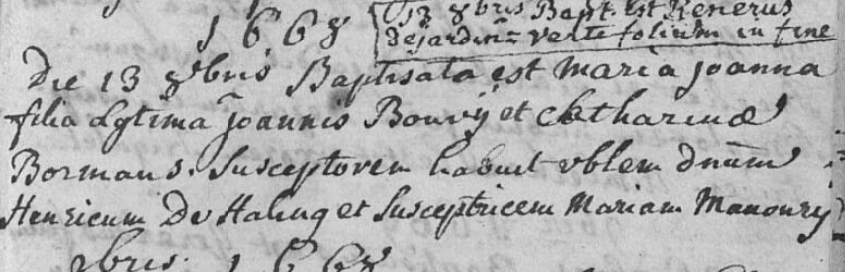 1668
13 8bris Bapt. Est Renerus
dejardin verte folium in fine
Die 13 8bris Baptisata est Maria Joanna
filia Lgtima Joannis Bouvÿ et Catharinæ
Bormans. Susceptorem habuit nblem dnum
Henricum De et Susceptricem Mariam Manoury
8bris 1668